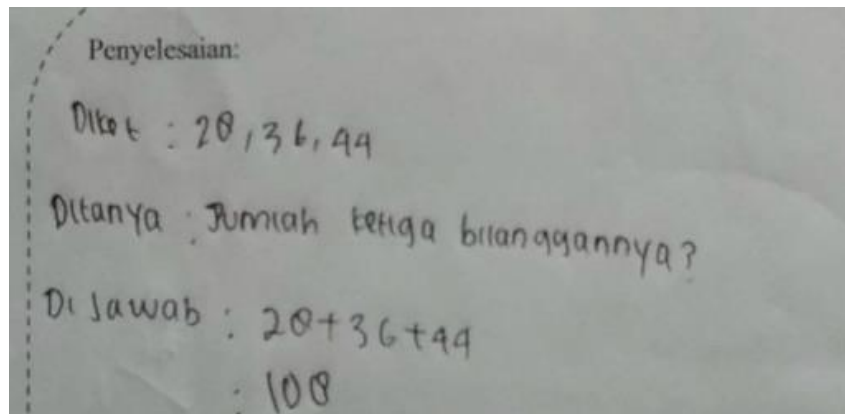 Penyelesaian:
Diket : 28, 36, 44
Ditanya : Jumlah ketiga bilanggannya?
Di Jawab : 28+36+44
: 108